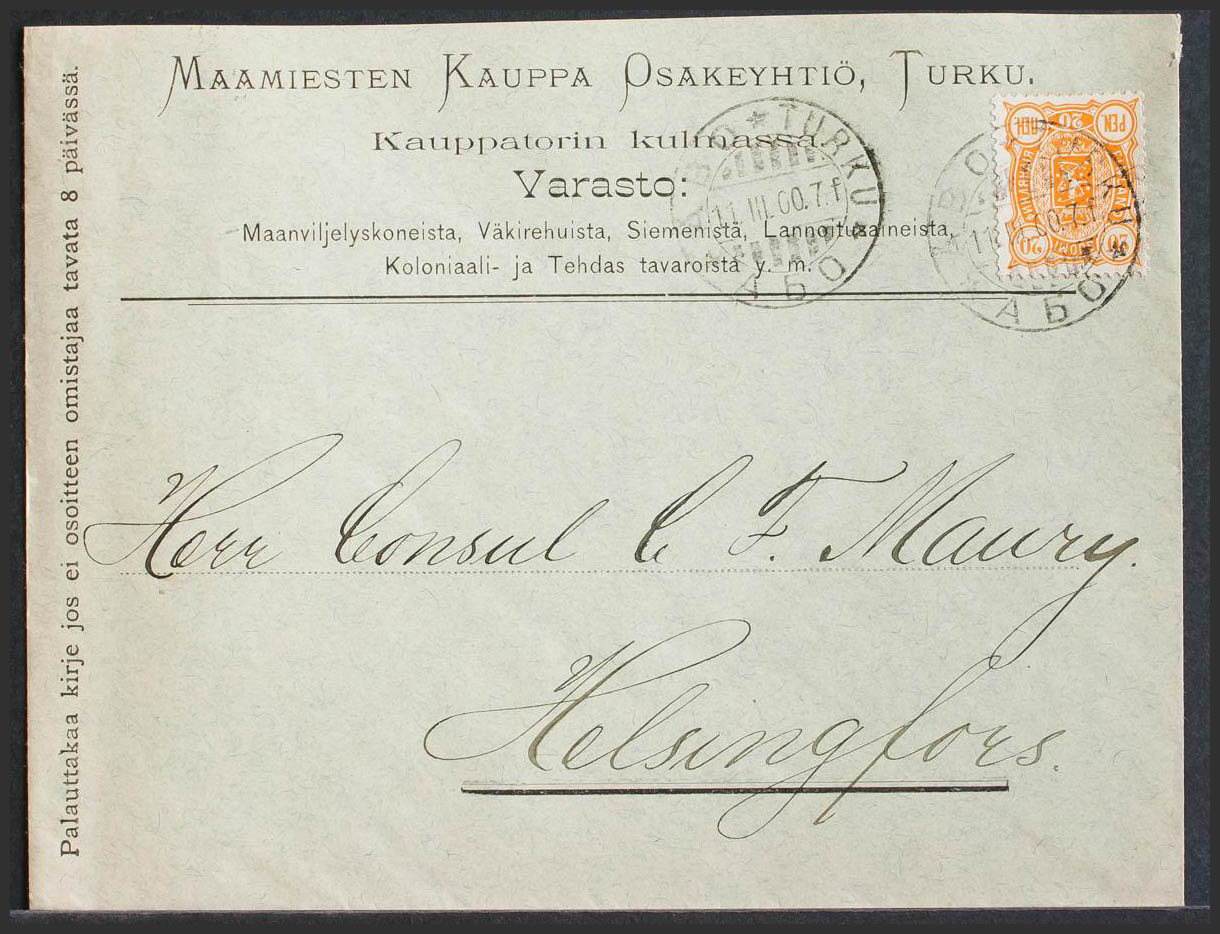 MAAMIESTEN KAUPPA OSAKEYHTIÖ, TURKU.
Kauppatorin kulmassa.
Varasto:
Maanviljelyskoneista, Väkirehuista, Siemenistä, Lannoitusaineista,
Koloniaali- ja Tehdas tavaroista y. m.
Palauttakaa kirje jos ei osoitteen omistajaa tavata 8 päivässä.
ÅBO * TURKU *
11. III. 00. 7. f
АБО
PEN. 20
20
Herr Consul C F. Maury.
Helsingfors.